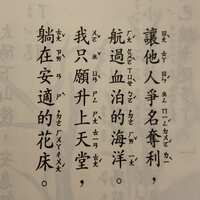 讓他人爭名奪利，
航過血泊的海洋。
我只願升上天堂，
躺在安適的花床。